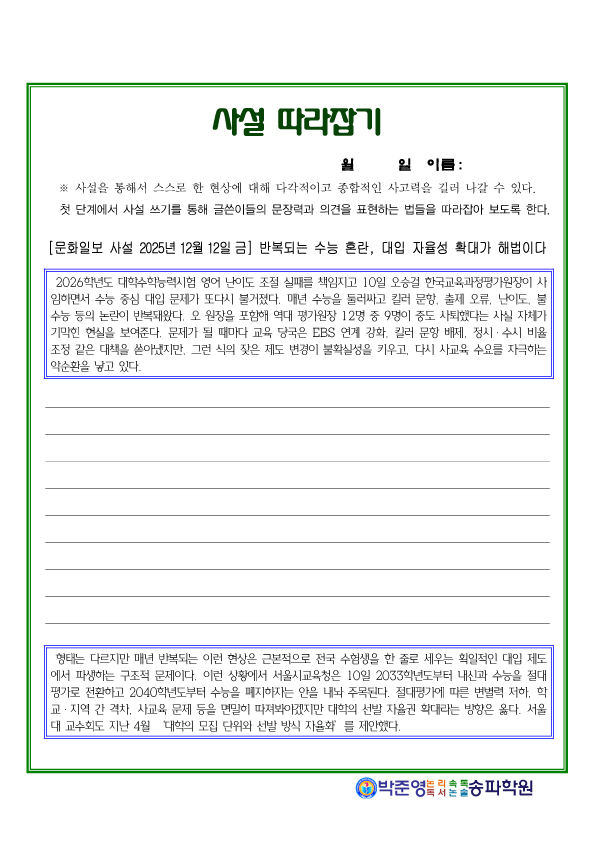 사설 따라잡기
월 일 이름:
※ 사설을 통해서 스스로 한 현상에 대해 다각적이고 종합적인 사고력을 길러 나갈 수 있다.
첫 단계에서 사설 쓰기를 통해 글쓴이들의 문장력과 의견을 표현하는 법들을 따라잡아 보도록 한다.
[문화일보 사설 2025년 12월 12일 금] 반복되는 수능 혼란, 대입 자율성 확대가 해법이다
2026학년도 대학수학능력시험 영어 난이도 조절 실패를 책임지고 10일 오승걸 한국교육과정평가원장이 사
임하면서 수능 중심 대입 문제가 또다시 불거졌다. 매년 수능을 둘러싸고 킬러 문항, 출제 오류, 난이도, 불
수능 등의 논란이 반복돼왔다. 오 원장을 포함해 역대 평가원장 12명 중 9명이 중도 사퇴했다는 사실 자체가
기막힌 현실을 보여준다. 문제가 될 때마다 교육 당국은 EBS 연계 강화, 킬러 문항 배제, 정시·수시 비율
조정 같은 대책을 쏟아냈지만, 그런 식의 잦은 제도 변경이 불확실성을 키우고, 다시 사교육 수요를 자극하는
악순환을 낳고 있다.
형태는 다르지만 매년 반복되는 이런 현상은 근본적으로 전국 수험생을 한 줄로 세우는 획일적인 대입 제도
에서 파생하는 구조적 문제이다. 이런 상황에서 서울시교육청은 10일 2033학년도부터 내신과 수능을 절대
평가로 전환하고 2040학년도부터 수능을 폐지하자는 안을 내놔 주목된다. 절대평가에 따른 변별력 저하, 학
교·지역 간 격차, 사교육 문제 등을 면밀히 따져봐야겠지만 대학의 선발 자율권 확대라는 방향은 옳다. 서울
대 교수회도 지난 4월 '대학의 모집 단위와 선발 방식 자율화'를 제안했다.
박준영논리속독독서논술송파학원